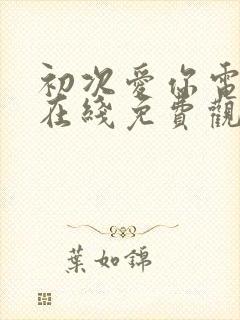 初次愛你電
在綫免費觀
葉如錦